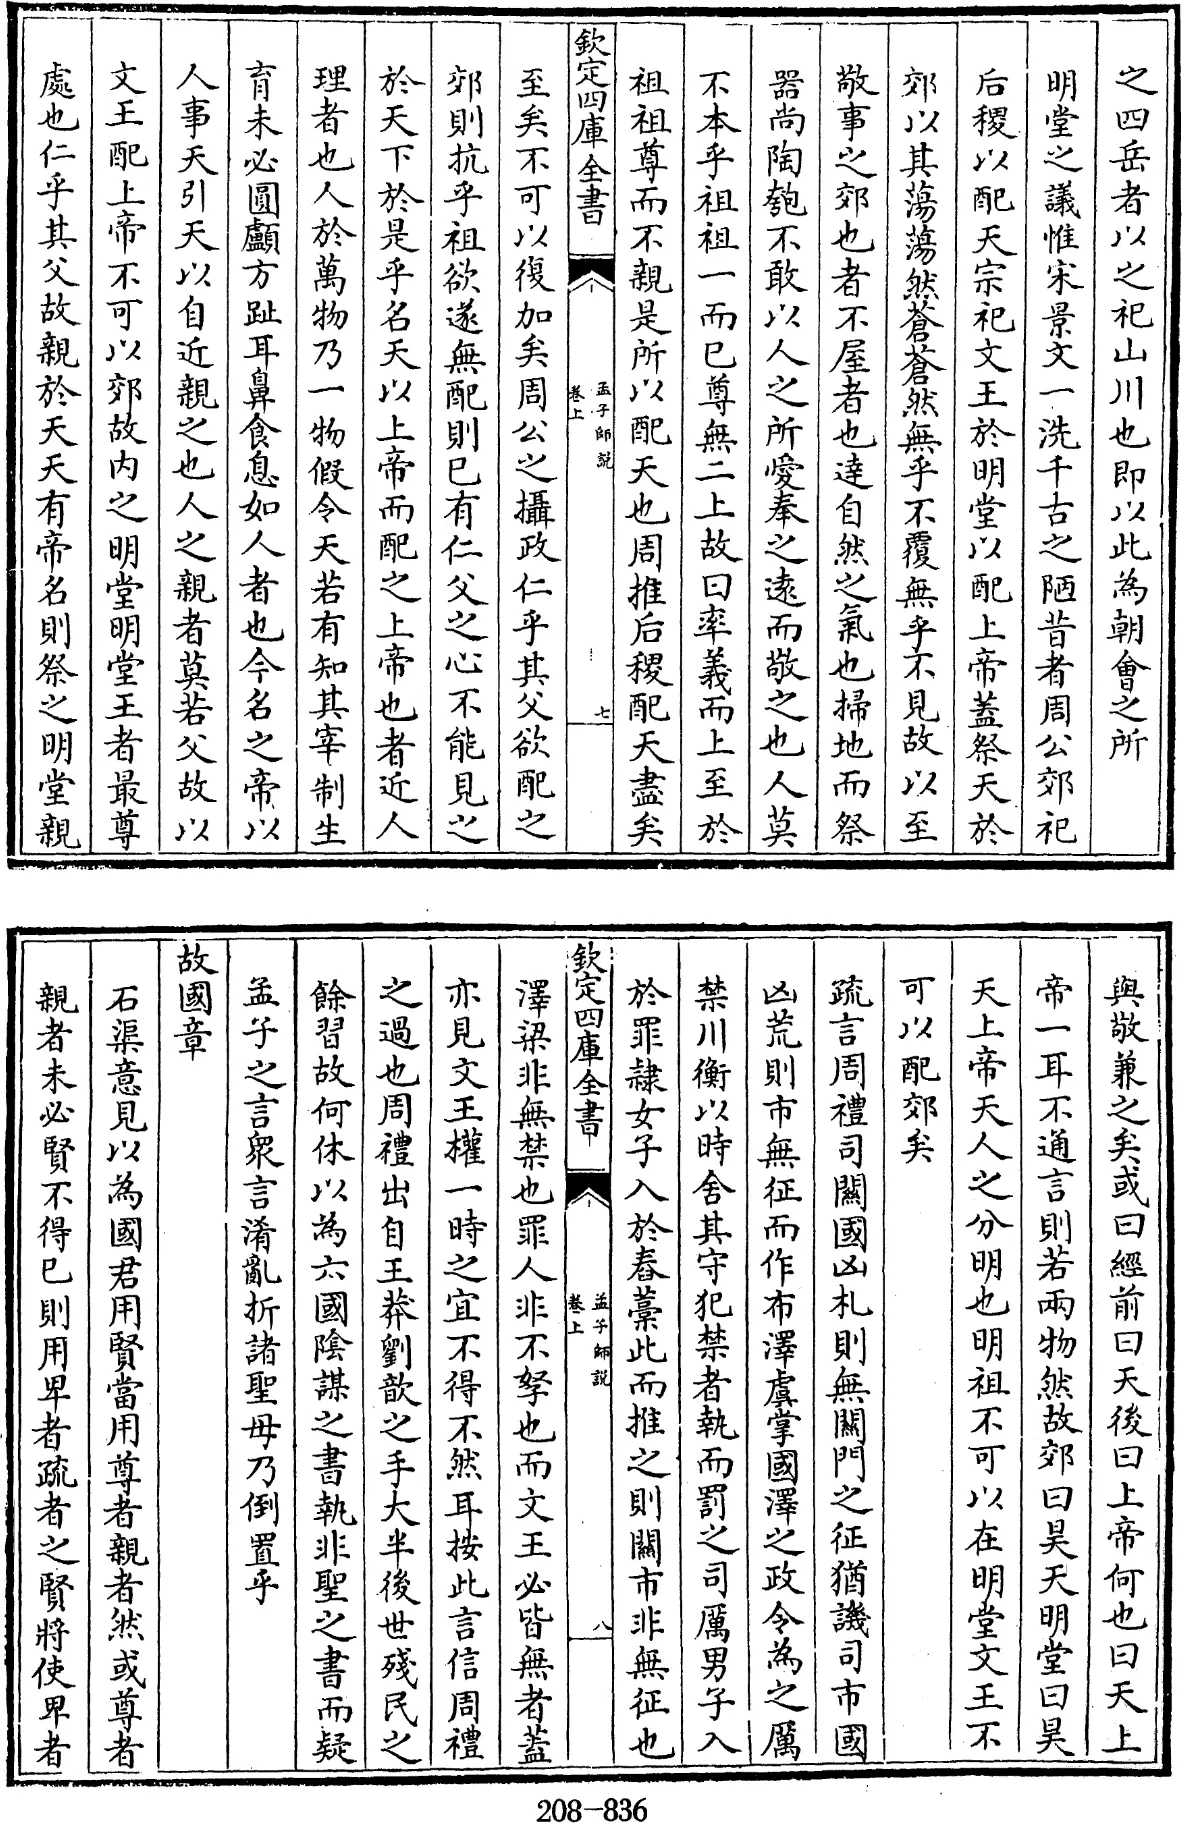 之四岳者以之祀山川也即以此為朝會之所
明堂之議惟宋景文一洗千古之陋昔者周公郊祀
后稷以配天宗祀文王於明堂以配上帝蓋祭天於
郊以其蕩蕩然蒼蒼然無乎不覆無乎不見故以至
敬事之郊也者不屋者也達自然之氣也掃地而祭
器尚陶匏不敢以人之所愛奉之遠而敬之也人莫
不本乎祖祖一而已尊無二上故曰率義而上至於
祖祖尊而不親是所以配天也周推后稷配天盡矣
欽定四庫全書
孟子師說
卷上
七
至矣不可以復加矣周公之攝政仁乎其父欲配之
郊則抗乎祖欲遂無配則已有仁父之心不能見之
於天下於是乎名天以上帝而配之上帝也者近人
理者也人於萬物乃一物假令天若有知其宰制生
育未必圓顱方趾耳鼻食息如人者也今名之帝以
人事天引天以自近親之也人之親者莫若父故以
文王配上帝不可以郊故内之明堂明堂王者最尊
處也仁乎其父故親於天天有帝名則祭之明堂親
與敬兼之矣或曰經前曰天後曰上帝何也曰天上
帝一耳不通言則若兩物然故郊曰昊天明堂曰昊
天上帝天人之分明也明祖不可以在明堂文王不
可以配郊矣
疏言周禮司關國凶札則無關門之征猶譏司市國
凶荒則市無征而作布澤虞掌國澤之政令為之厲
禁川衡以時舍其守犯禁者執而罰之司厲男子入
於罪隸女子入於舂藁此而推之則關市非無征也
欽定四庫全書
孟子師說
卷上
八
澤梁非無禁也罪人非不孥也而文王必皆無者蓋
亦見文王權一時之宜不得不然耳按此言信周禮
之過也周禮出自王莽劉歆之手大半後世殘民之
餘習故何休以為六國陰謀之書執非聖之書而疑
孟子之言衆言淆亂折諸聖毋乃倒置乎
故國章
石渠意見以為國君用賢當用尊者親者然或尊者
親者未必賢不得已則用卑者疏者之賢將使卑者
208-836